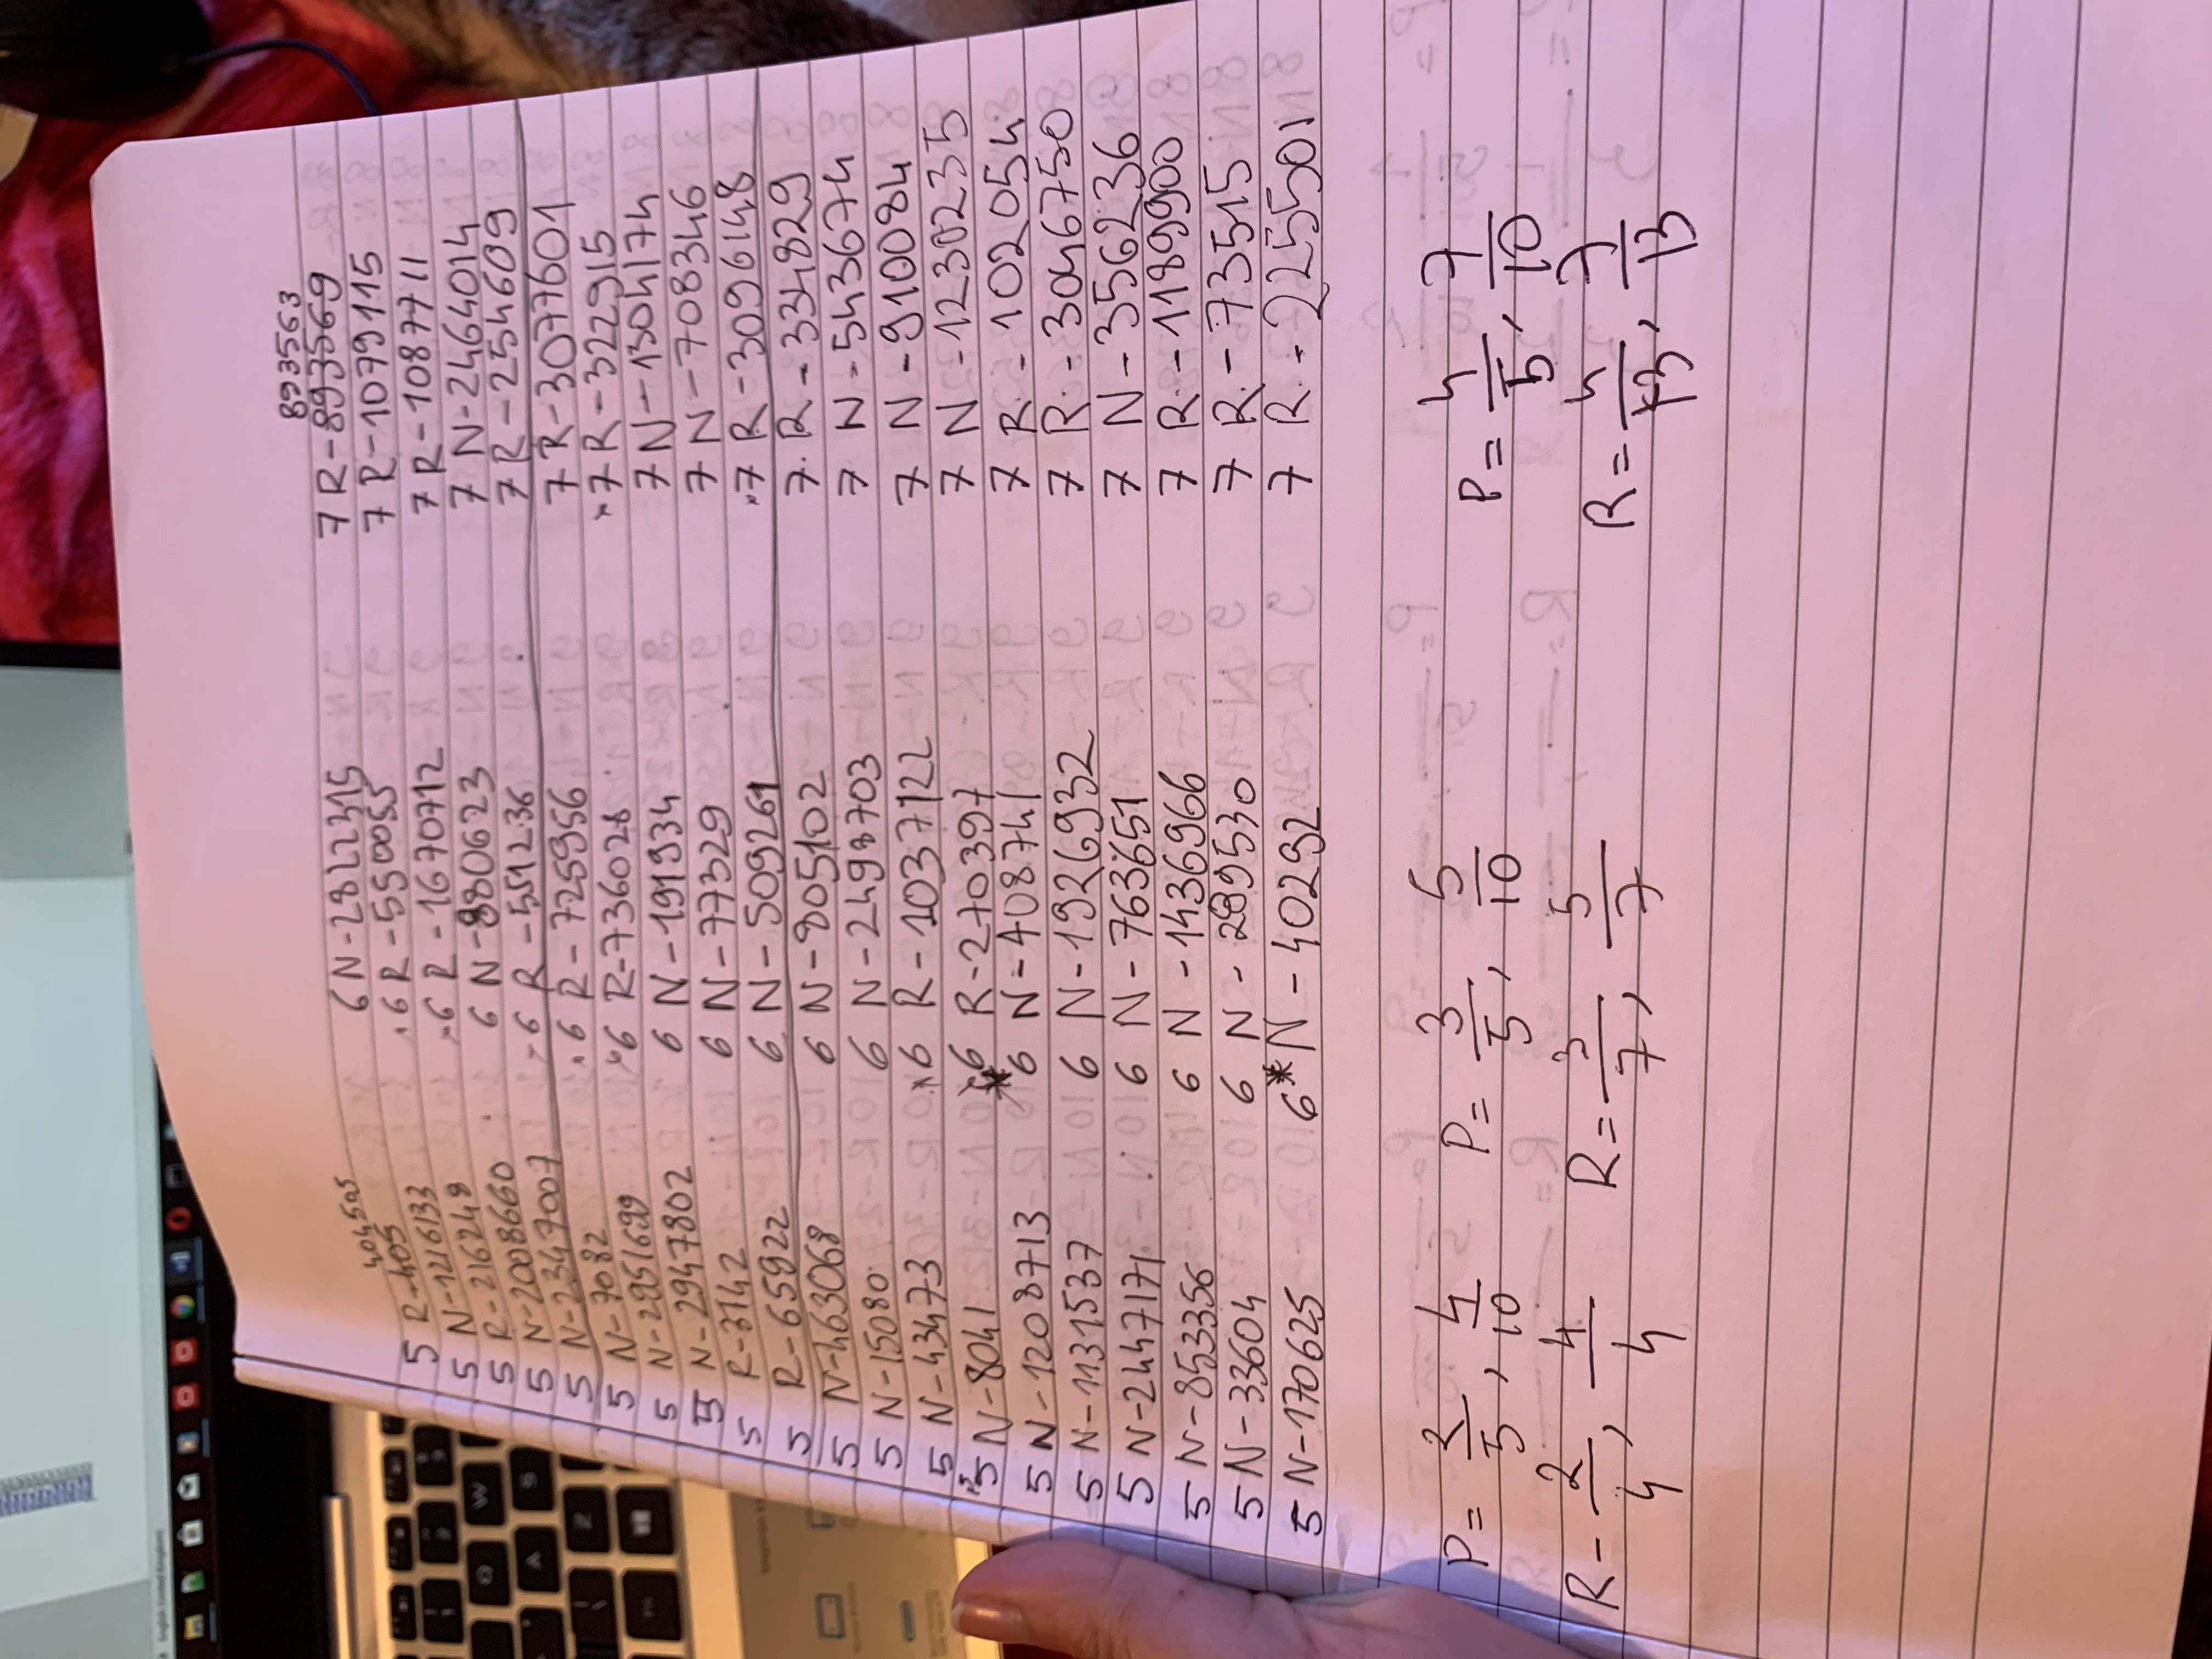 404505
5 R-405
5 N-1216133
5 R-216248
5 N-2008660
5 N-2347007
5 N-7082
5 N-2951699
5 N-2947802
5 R-3142
5 R-65922
5 N-463068
5 N-15080
5 N-43473
5 N-8041
5 N-1208713
5 N-1131537
5 N-2447171
5 N-853356
5 N-33604
5 N-170625
P= 2/5, 4/10
R- 2/4, 4/4
6 N-2822315
6 R-550055
6 R-1670712
6 N-880623
6 R-551236
6 R-725956
6 R-736028
6 N-191934
6 N-77329
6 N-509261
6 N-805102
6 N-2498703
6 R-1037122
6 R-270397
* 6 N-408741
6 N-1926932
6 N-763651
6 N-1436966
6 N-289530
6 * N-40292
P= 3/5, 5/10
R= 3/7, 5/7
893563
7 R-893569
7 R-1079115
7 R-1087711
7 N-2464014
7 R-254609
7 R-3077601
×7 R-322915
7 N-1304174
7 N-708346
×7 R-3096148
7 R-334829
7 N-543674
7 N-910084
7 N-1230235
7 R-102054
7 R-3046750
7 N-356236
7 R-1189900
7 R-73515
7 R-2255501
P= 4/5, 7/10
R= 4/13, 7/13